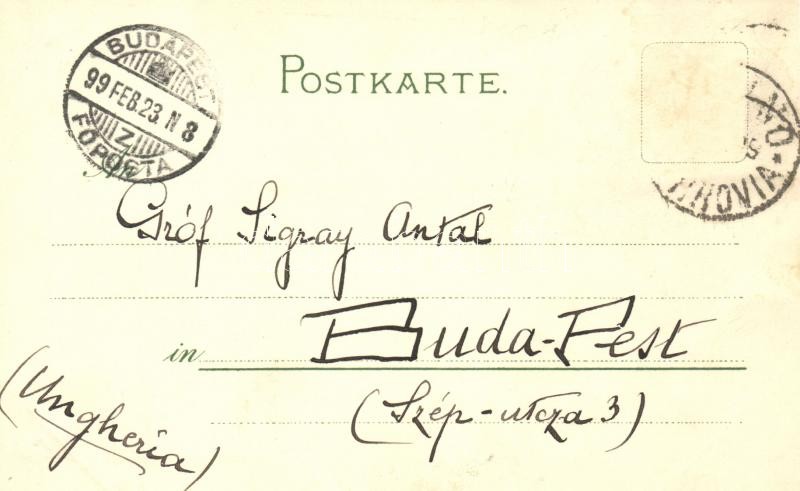 POSTKARTE.
BUDAPEST
99 FEB. 23. N 8
Z
FŐPOSTA
An
Gróf Sigray Antal
in Buda-Pest
(Szép-utcza 3)
(Ungheria)